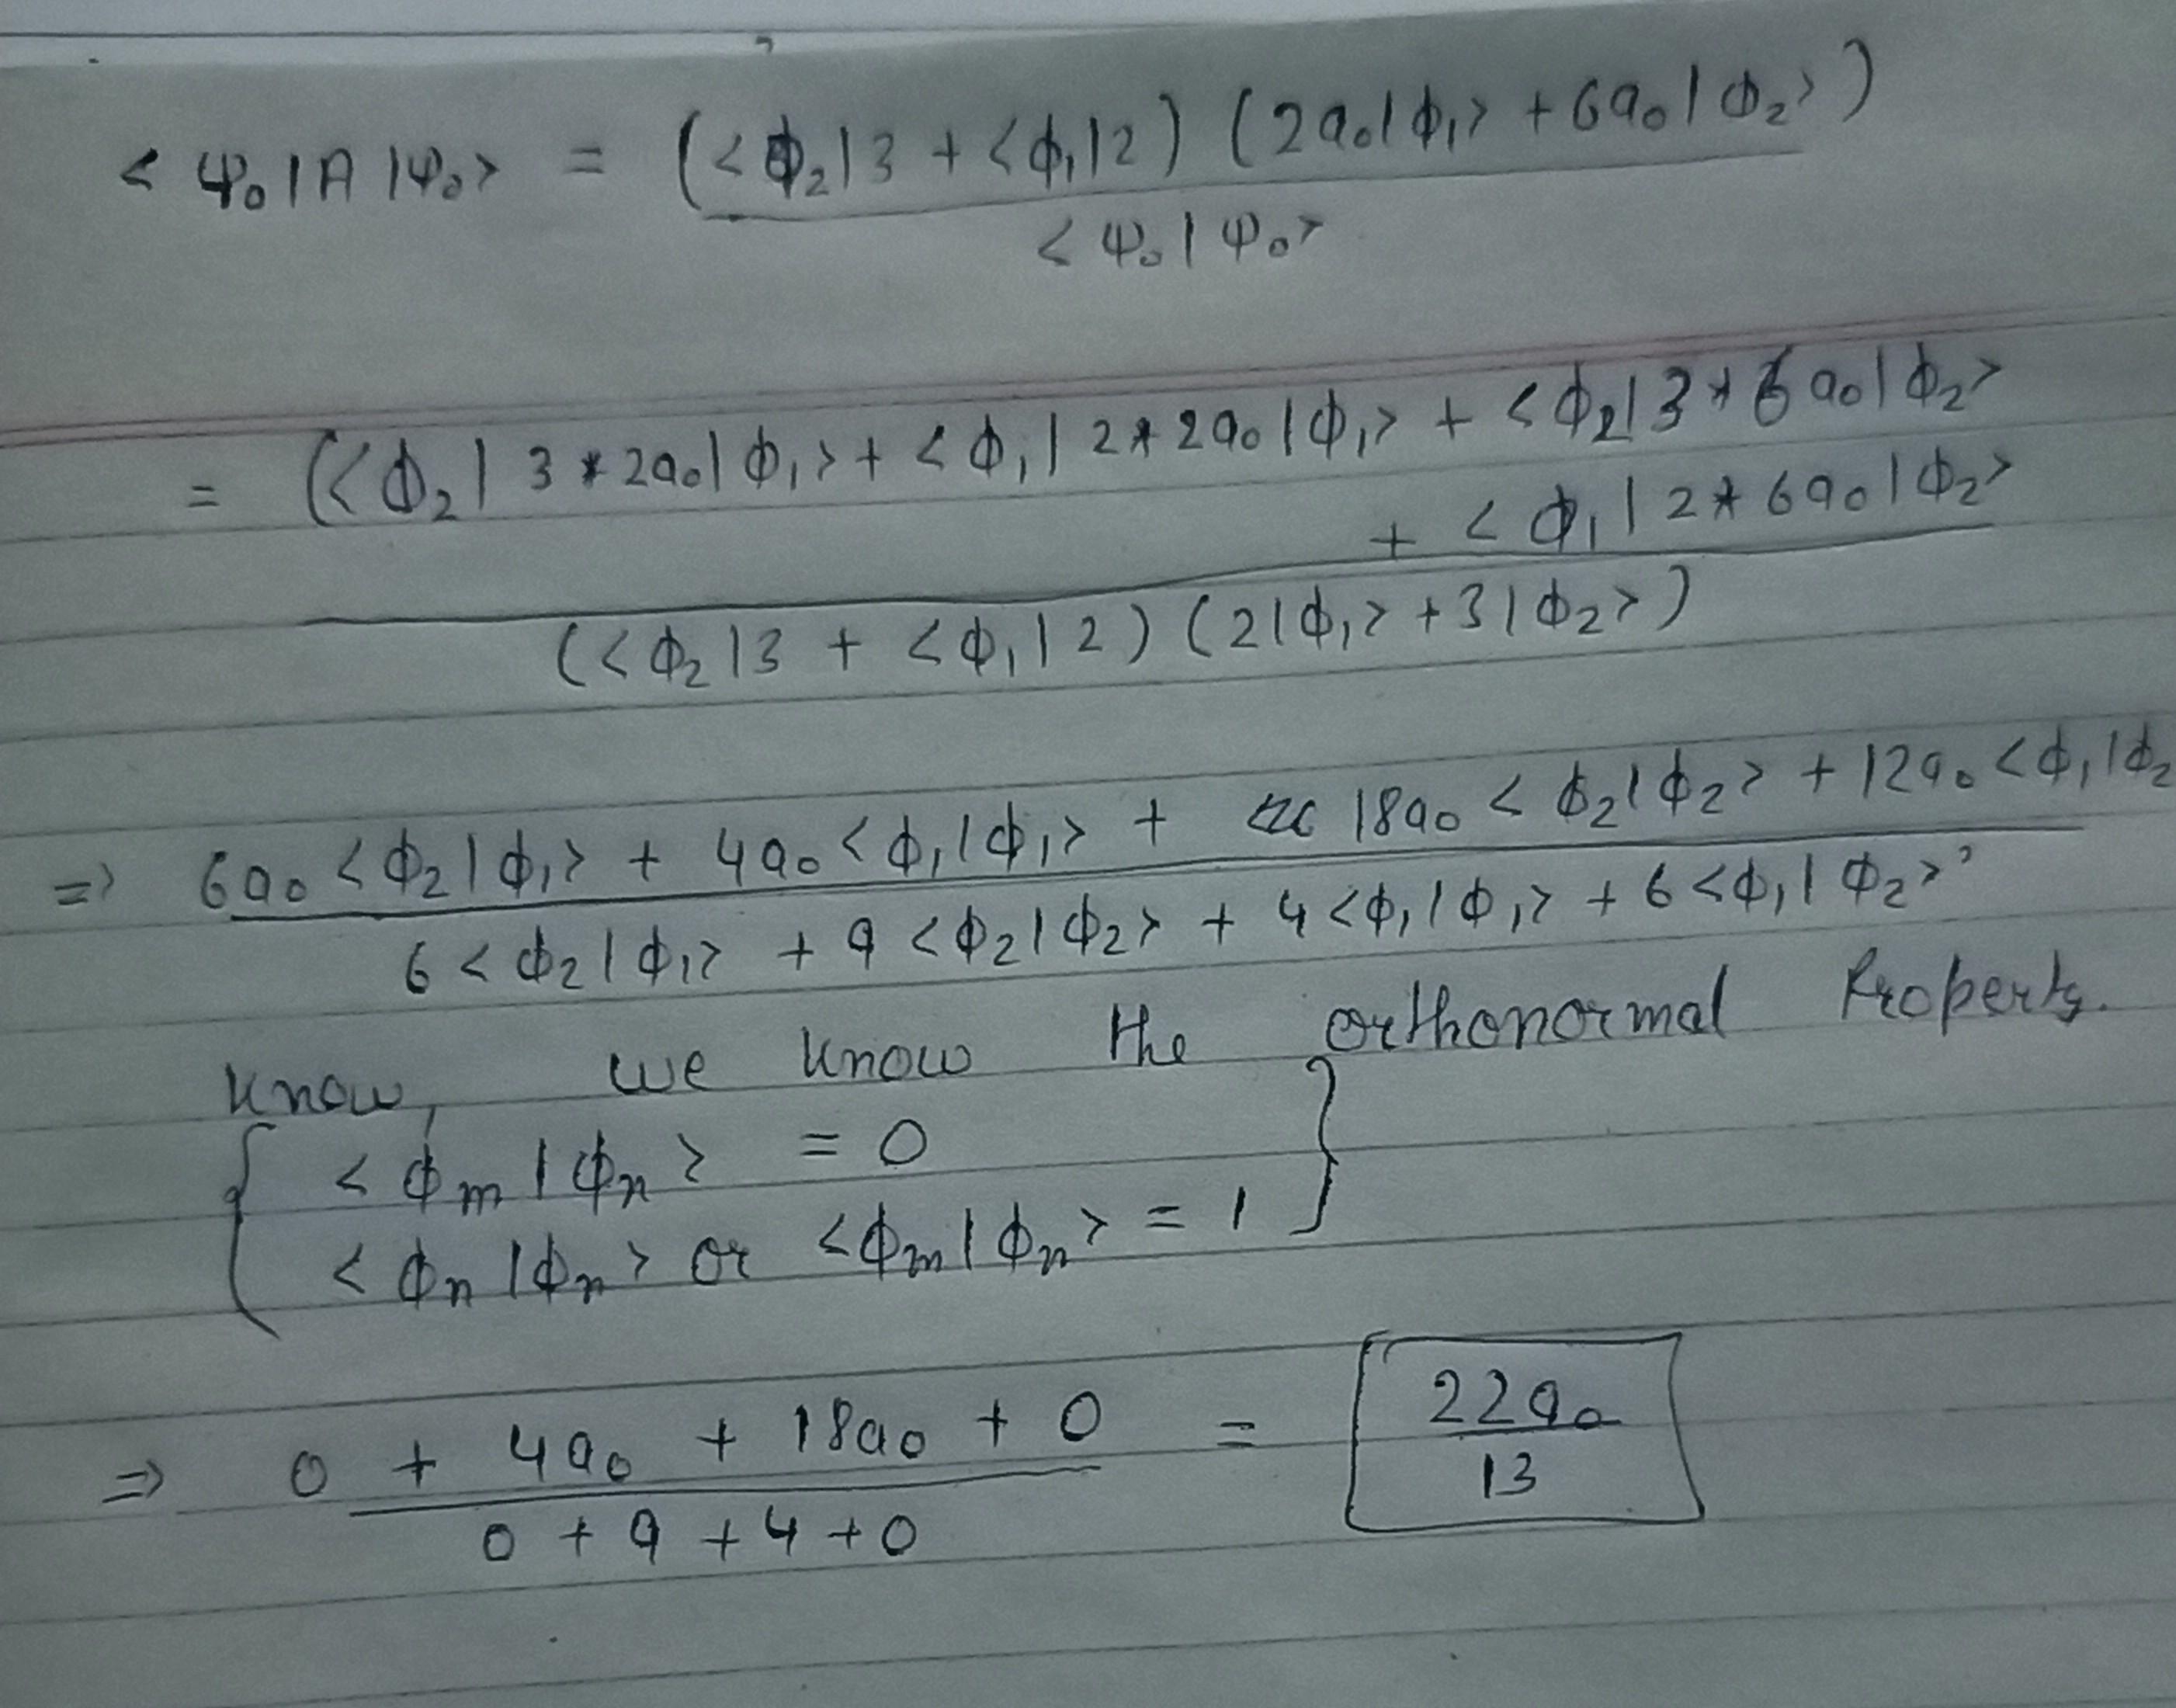 < ψ₀ | A | ψ₀ > = (< ϕ₂ | 3 + < ϕ₁ | 2 ) ( 2a₀ | ϕ₁ > + 6a₀ | ϕ₂ > )
< ψ₀ | ψ₀ >
= (< ϕ₂ | 3 * 2a₀ | ϕ₁ > + < ϕ₁ | 2 * 2a₀ | ϕ₁ > + < ϕ₂ | 3 * 6a₀ | ϕ₂ >
+ < ϕ₁ | 2 * 6a₀ | ϕ₂ >
( < ϕ₂ | 3 + < ϕ₁ | 2 ) ( 2 | ϕ₁ > + 3 | ϕ₂ > )
=> 6a₀ < ϕ₂ | ϕ₁ > + 4a₀ < ϕ₁ | ϕ₁ > + 18a₀ < ϕ₂ | ϕ₂ > + 12a₀ < ϕ₁ | ϕ₂
6 < ϕ₂ | ϕ₁ > + 9 < ϕ₂ | ϕ₂ > + 4 < ϕ₁ | ϕ₁ > + 6 < ϕ₁ | ϕ₂ >
Know, we know the orthonormal Property.
{ < ϕₘ | ϕₙ > = 0
< ϕₙ | ϕₙ > or < ϕₘ | ϕₙ > = 1 }
=> 0 + 4a₀ + 18a₀ + 0 = 22a₀
0 + 9 + 4 + 0 13